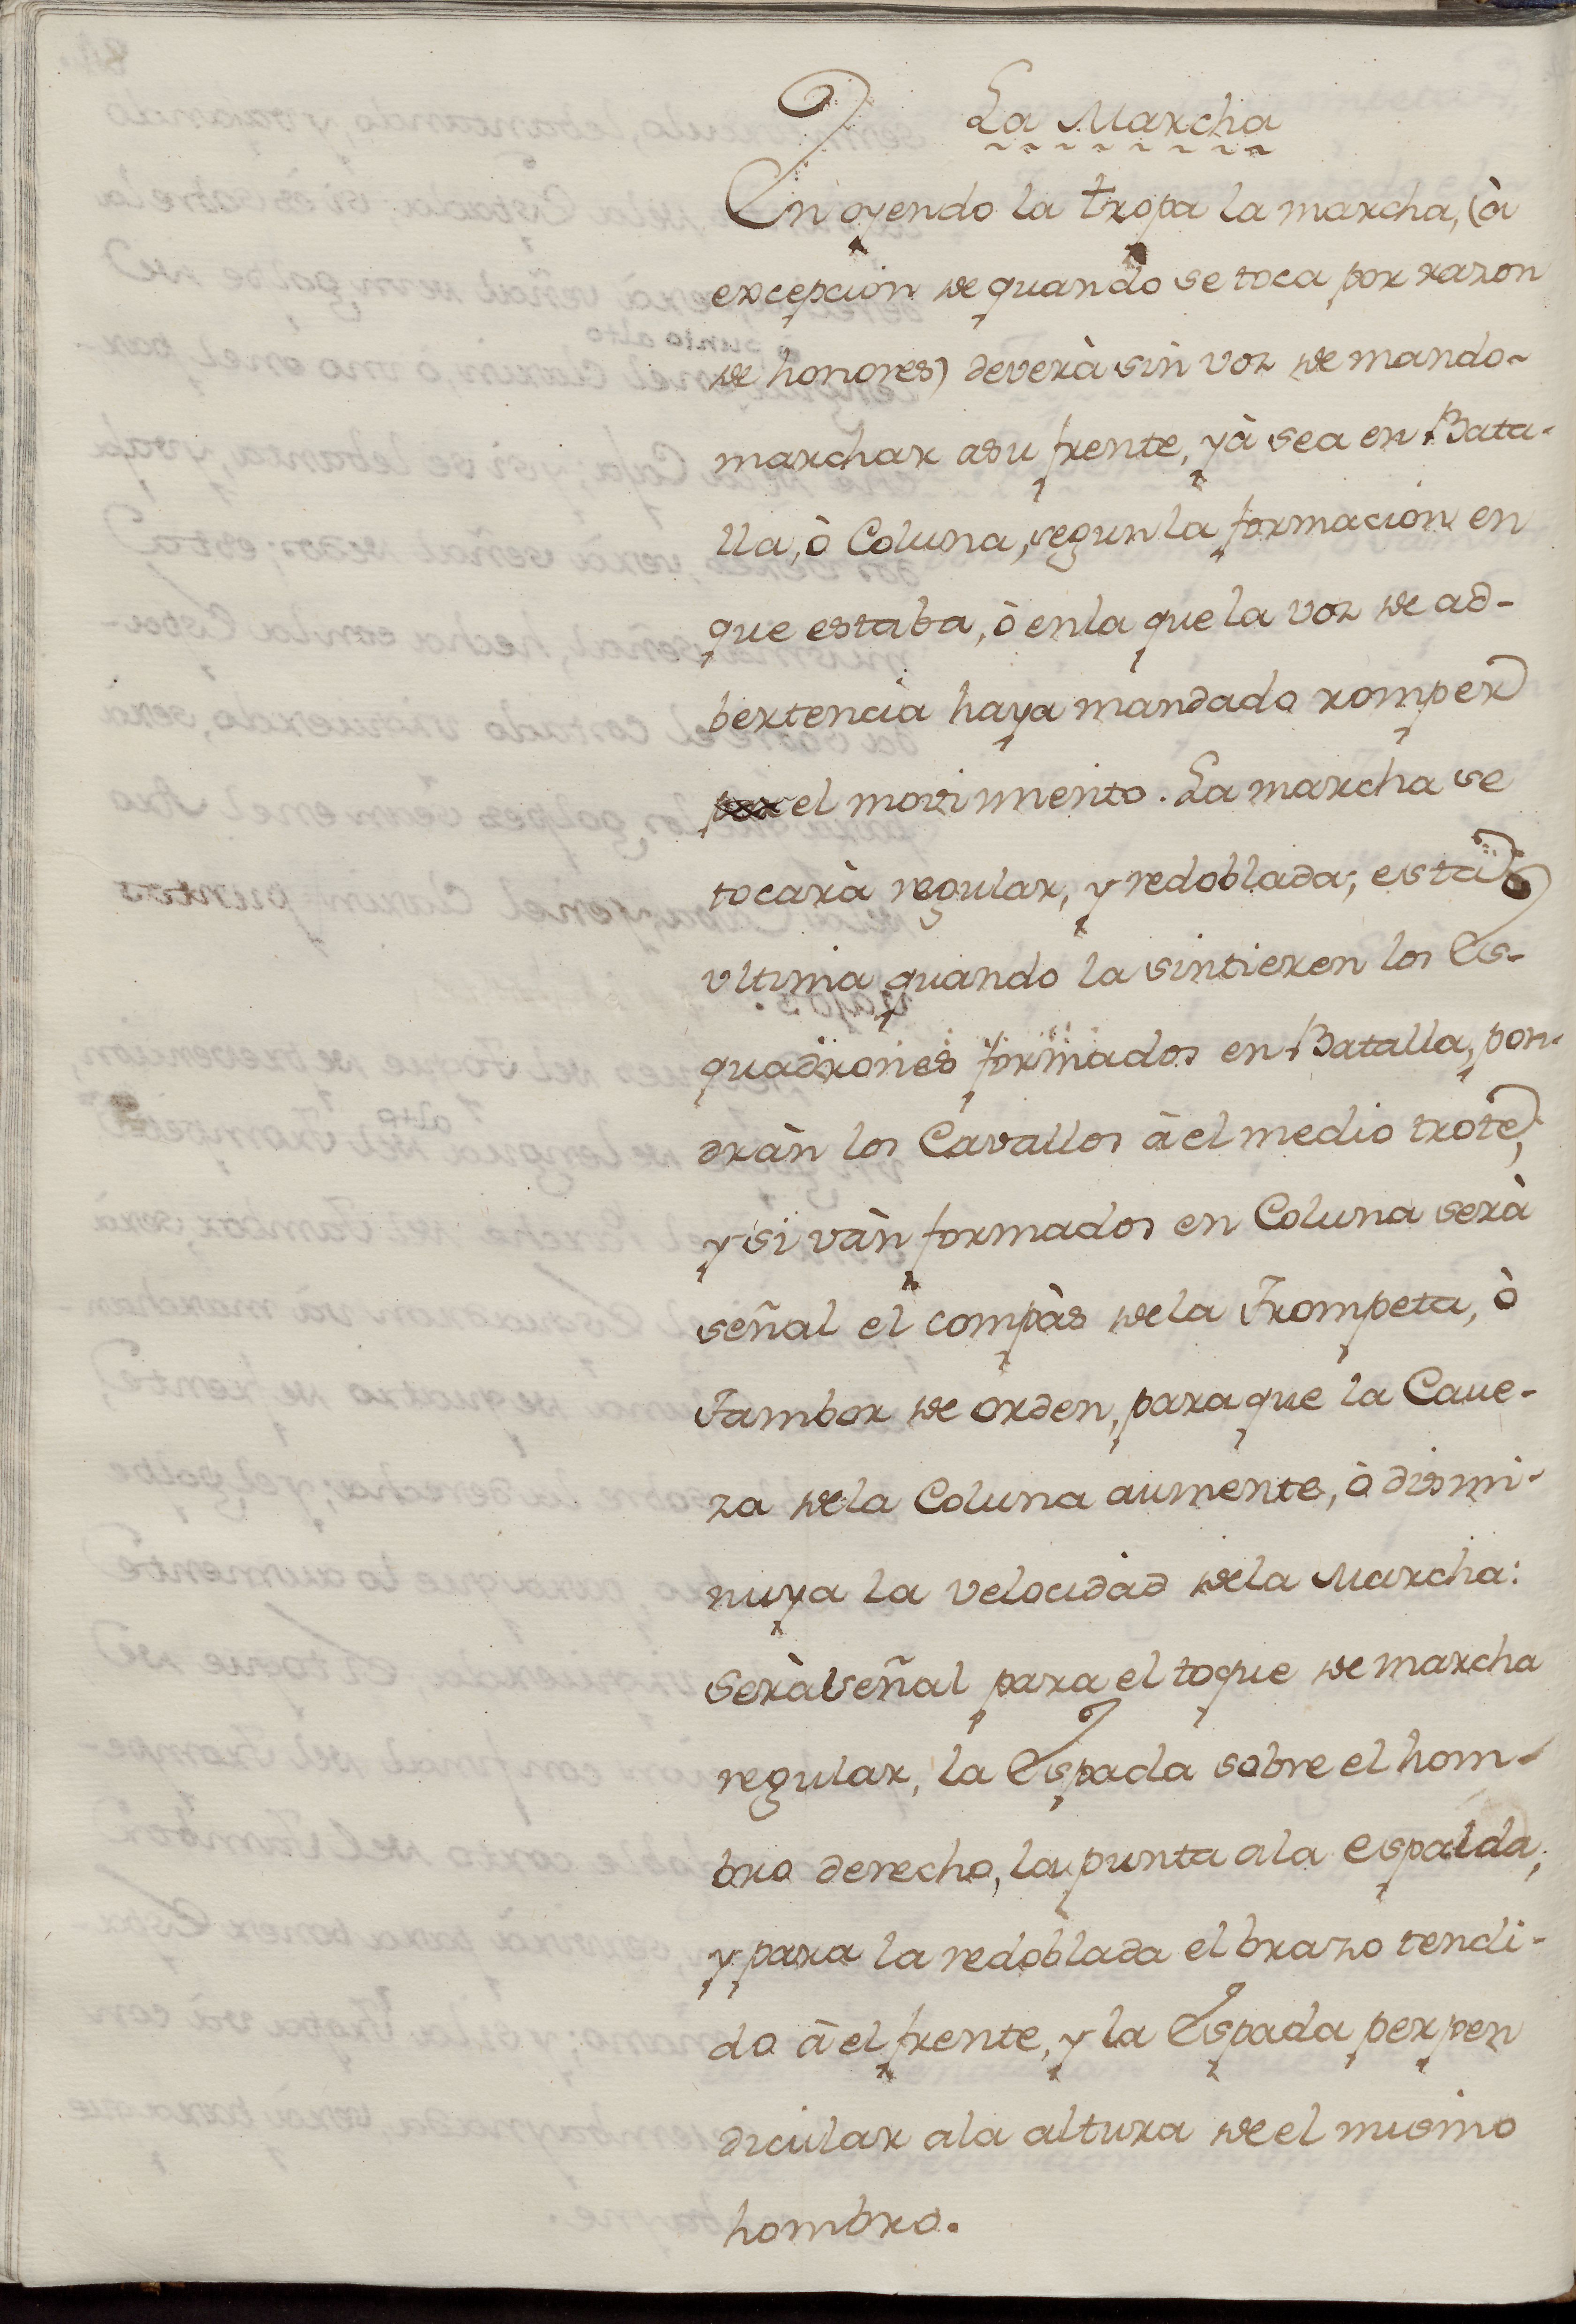 La Marcha
En oyendo la tropa la marcha, (à
excepcion de quando se toca por razon
de honores) deverà sin voz de mando
marchar asu frente, yà sea en Bata-
lla, ò Coluna, segun la formacion en
que estaba, ò enla que la voz de ad-
bertencia haya mandado romper
por el movimiento. La marcha se
tocarà regular, y redoblada; esta
ultima quando la sintieren los Es-
quadrones formados en Batalla, pon-
dràn los Cavallos à el medio trote,
y si vàn formados en Coluna serà
señal el compàs dela Trompeta, ò
Tambor de orden, para que la Cave-
za dela Coluna aumente, ò dismi-
nuya la velocidad dela Marcha:
Serà señal para el toque de marcha
regular, la Espada sobre el hom-
bro derecho, la punta ala espalda;
y para la redoblada el brazo tendi-
do à el frente, y la Espada perpen
dicular ala altura de el mismo
hombro.